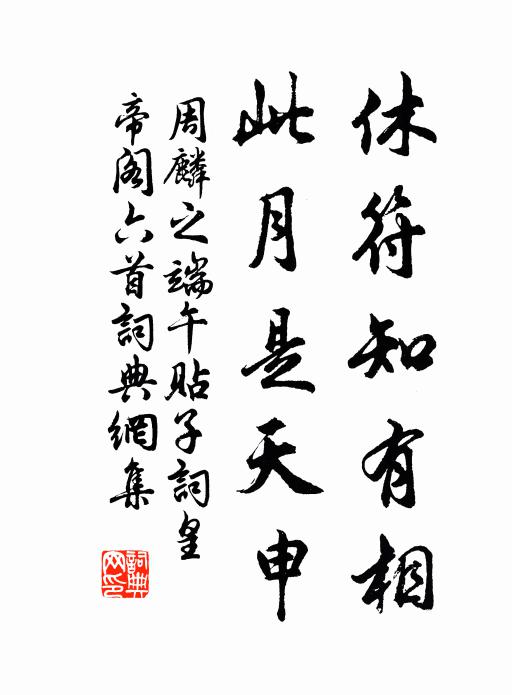 休符知有相
此月是天申
周麟之端午貼子詞皇
帝阁六首詞典網集
詞典網印